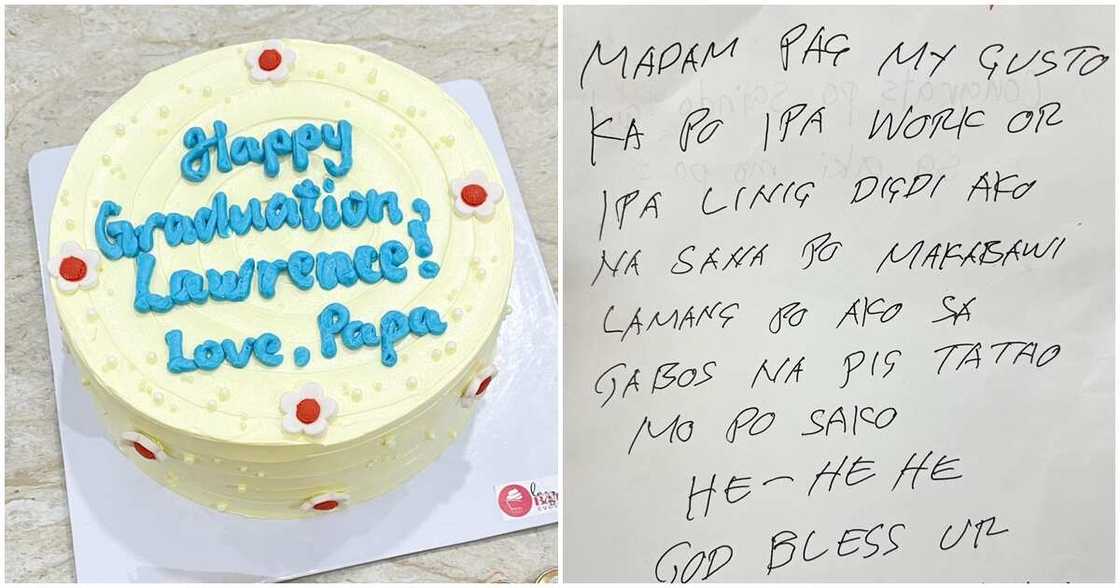 Happy
Graduation,
Lawrence!
Love, Papa
MADAM PAG MY GUSTO
KA PO IPA WORK OR
IPA LINIG DIGDI AKO
NA SANA PO MAKABAWI
LAMANG PO AKO SA
GABOS NA PIG TATAO
MO PO SAKO
HE-HE HE
GOD BLESS UR